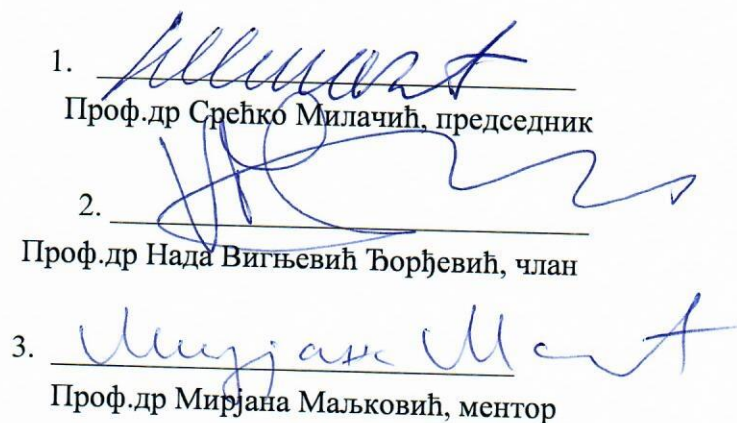 1.
Проф.др Срећко Милачић, председник
2.
Проф.др Нада Вигњевић Ђорђевић, члан
3. Мирјана
Проф.др Мирјана Маљковић, ментор